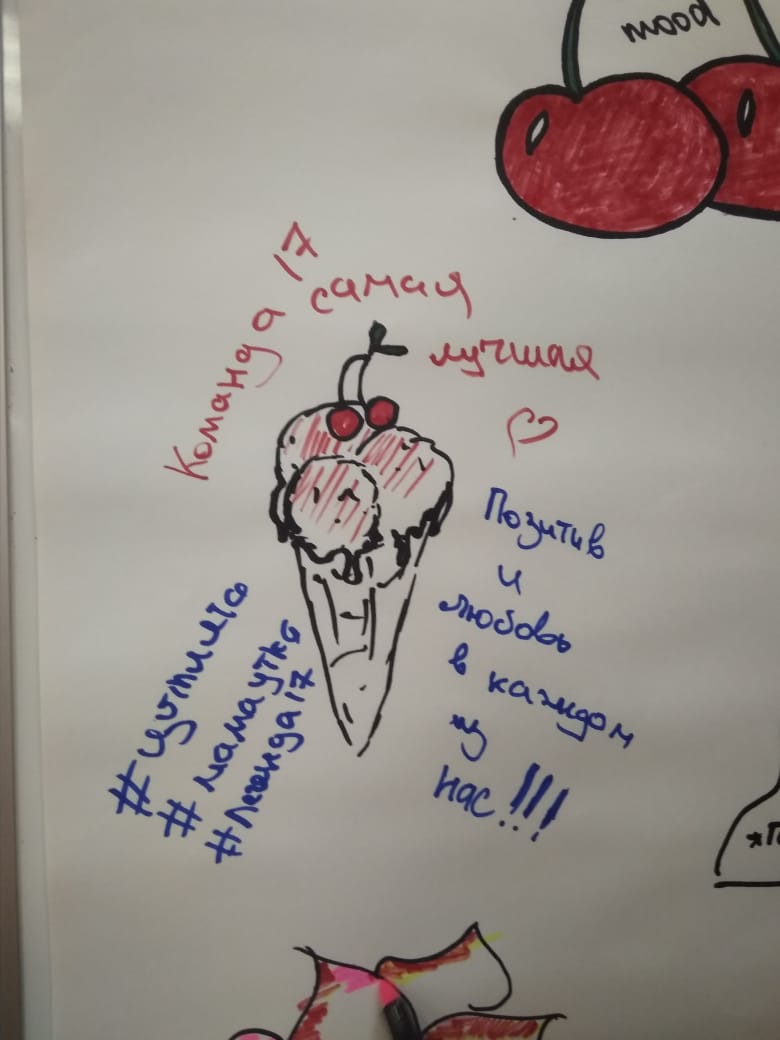 mood
Команда 17
самая
лучшая
Позитив
и
любовь
в каждом
из
нас!!!
#мамаутка
#Легенда17